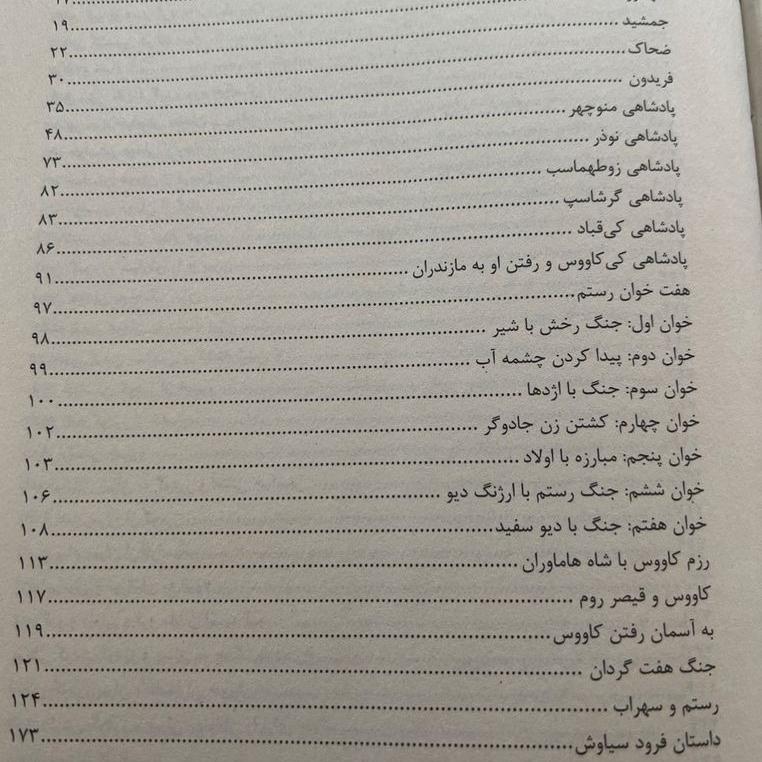 جمشید ........ ۱۹
ضحاک ........ ۲۲
فریدون ........ ۳۰
پادشاهی منوچهر ........ ۳۵
پادشاهی نوذر ........ ۴۸
پادشاهی زوطهماسب ........ ۷۳
پادشاهی گرشاسپ ........ ۸۲
پادشاهی کی‌قباد ........ ۸۳
پادشاهی کی‌کاووس و رفتن او به مازندران ........ ۸۶
هفت خوان رستم ........ ۹۱
خوان اول: جنگ رخش با شیر ........ ۹۷
خوان دوم: پیدا کردن چشمه آب ........ ۹۸
خوان سوم: جنگ با اژدها ........ ۹۹
خوان چهارم: کشتن زن جادوگر ........ ۱۰۰
خوان پنجم: مبارزه با اولاد ........ ۱۰۲
خوان ششم: جنگ رستم با ارژنگ دیو ........ ۱۰۳
خوان هفتم: جنگ با دیو سفید ........ ۱۰۶
رزم کاووس با شاه هاماوران ........ ۱۰۸
کاووس و قیصر روم ........ ۱۱۳
به آسمان رفتن کاووس ........ ۱۱۷
جنگ هفت گردان ........ ۱۱۹
رستم و سهراب ........ ۱۲۱
داستان فرود سیاوش ........ ۱۲۴
۱۷۳